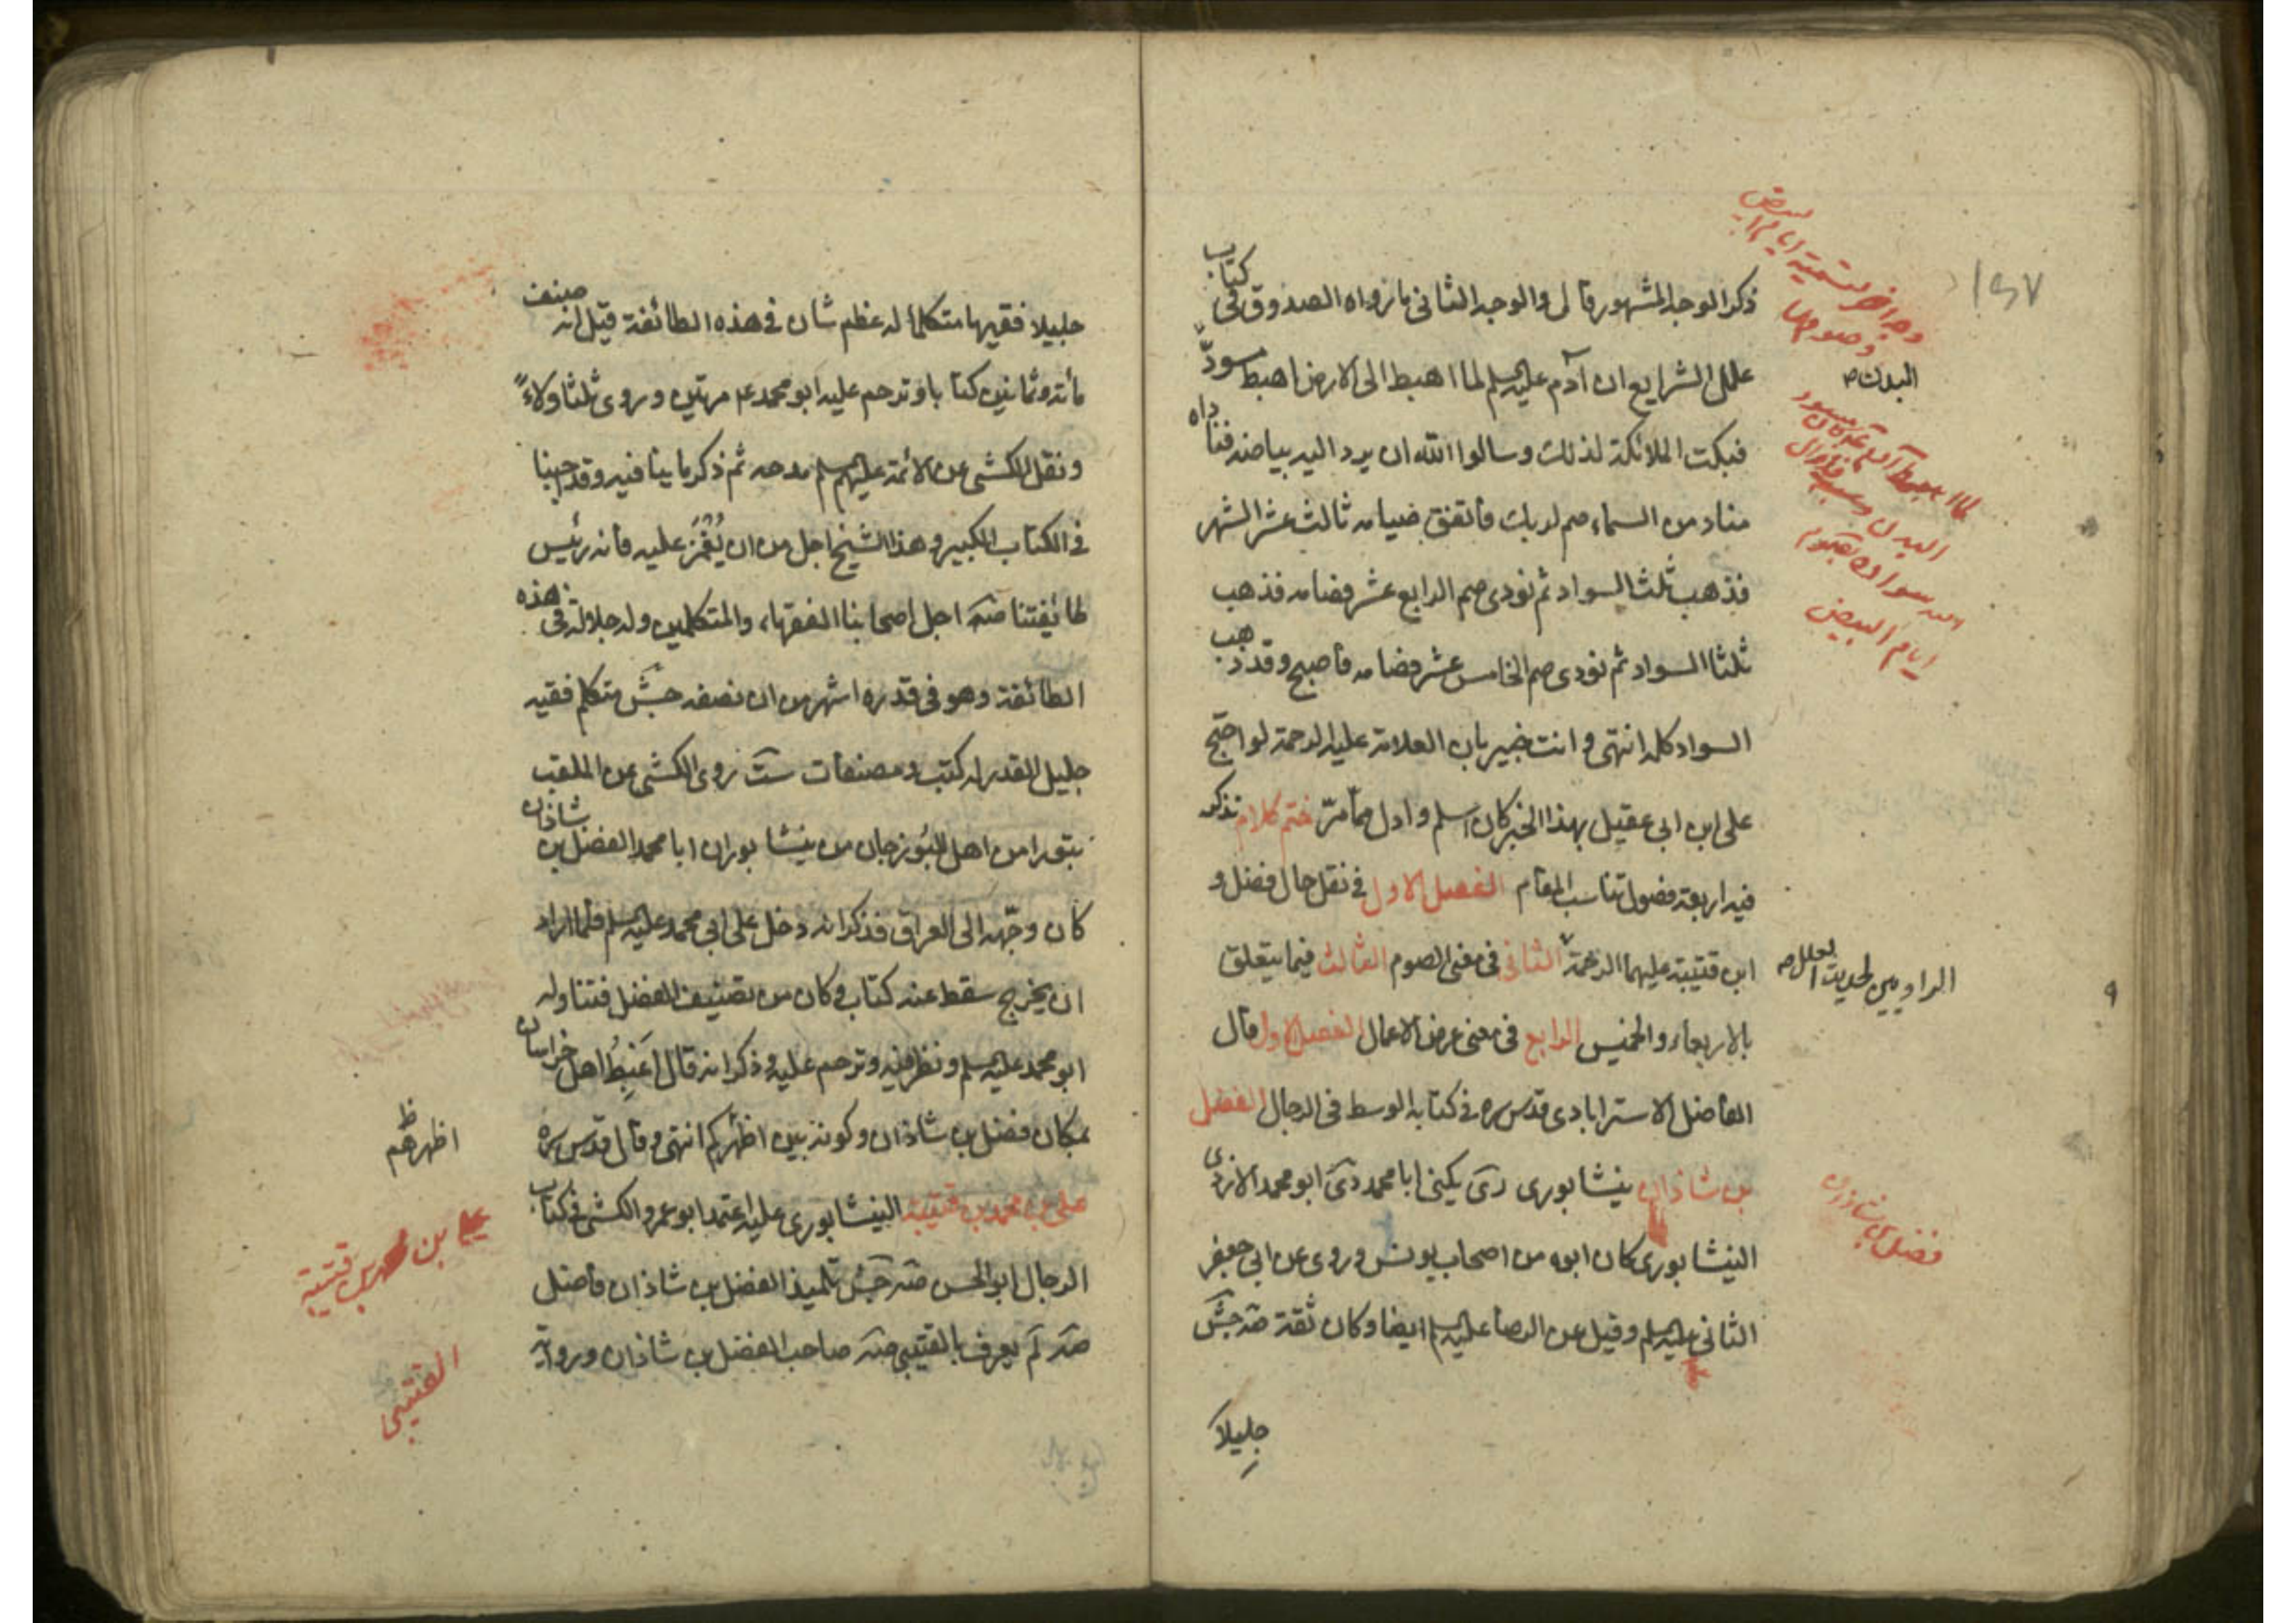 ذكر الوجه المشهور قال والوجه الثاني ما رواه الصدوق في كتاب
علل الشرايع ان آدم عليه السلم لما اهبط الى الارض اهبط مسودّا
فبكت الملائكة لذلك وسالوا الله ان يرد اليه بياضه فناداه
مناد من السماء صم لربك فاتفق صيامه ثالث عشر الشهر
فذهب ثلث السواد ثم نودى صم الرابع عشر فصامه فذهب
ثلثا السواد ثم نودى صم الخامس عشر فصامه فاصبح وقد ذهب
السواد كله انتهى وانت خبير بان العلامة عليه الرحمة لو احتج
على ابن ابى عقيل بهذا الخبر كان اسلم وادل مما مرّ ختم كلام نذكر
فيه اربعة فصول تناسب المقام الفصل الاول في نقل حال فضل و
ابن قتيبة عليهما الرحمة الثانى فى معنى الصوم الثالث فيما يتعلق
بالاربعاء والخميس الرابع فى معنى عرض الاعمال الفصل الاول قال
الفاضل الاسترابادى قدس سره في كتابه الوسط فى الرجال الفضل
بن شاذان نيشابورى دى يكنى ابا محمد دى ابو محمد الازدى
النيشابورى كان ابوه من اصحاب يونس وروى عن ابى جعفر
الثانى عليه السلم وقيل عن الرضا عليه السلم ايضا وكان ثقة صه جش
جليلا
١٤٧
وجه اخر لتسمية ايام البيض
وصومها
البدن صه
لما اهبط آدم
ايام البيض
الراويين لحديث العلل صه
فضل بن شاذان
جليلا فقيها متكلما له عظم شان في هذه الطائفة قيل انه صنف
مائة وثمانين كتابا وترحم عليه ابو محمد ع مرتين وروى ثلثا ولاءً
ونقل الكشى عن الائمة عليهم السلم مدحه ثم ذكر ما ينافيه وقد اجبنا
في الكتاب الكبير وهذا الشيخ اجل من ان يُغْمَزَ عليه فانه رئيس
طائفتنا صه اجل اصحابنا الفقهاء والمتكلمين وله جلالة فى هذه
الطائفة وهو فى قدره اشهر من ان نصفه جش متكلم فقيه
جليل القدر له كتب ومصنفات ست روى الكشى عن الملقب
بتورا من اهل البُوزجان من نيشابور ان ابا محمد الفضل بن شاذان
كان وجّهه الى العراق فذكر انه دخل على ابى محمد عليه السلم فلما اراد
ان يخرج سقط عنه كتاب وكان من تصنيف الفضل فتناوله
ابو محمد عليه السلم ونظر فيه وترحم عليه وذكر انه قال اَغبِطُ اهل خراسان
بمكان فضل بن شاذان وكونه بين اظهركم انتهى وقال قدس سره
على بن محمد بن قتيبة النيشابورى عليه اعتمد ابو عمرو الكشى في كتاب
الرجال ابو الحسن صه جش تلميذ الفضل بن شاذان فاضل
صه لم يعرف بالقتيبى صه صاحب الفضل بن شاذان ورواية
اظهرهم ظ
على بن محمد بن قتيبة
القتيبى